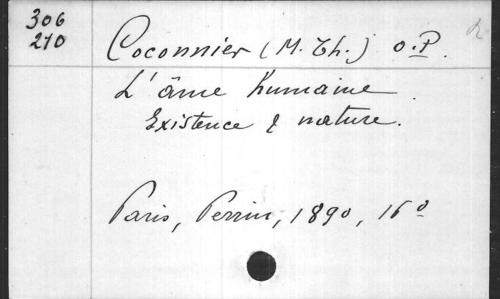 306
210
Coconnier (M. Th.) O.P.
L'âme humaine.
Existence & nature.
Paris, Perrin, 1890, 16º